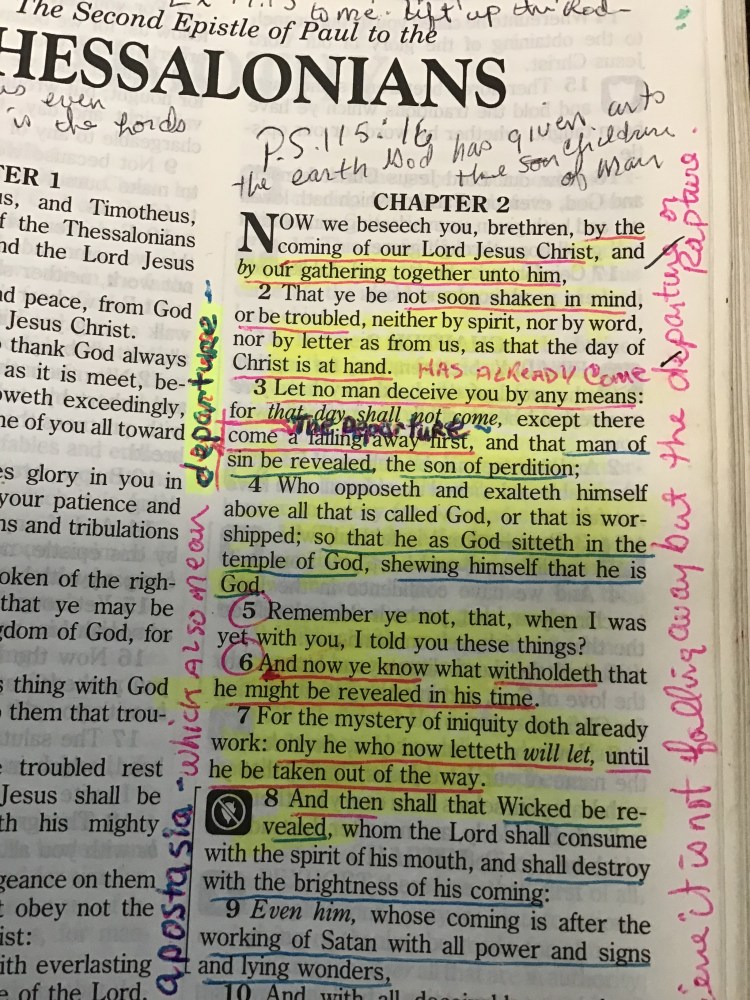 to me. lift up the Rod
The Second Epistle of Paul to the
HESSALONIANS
is even
is the Lords
P.S. 115:16
the earth God has given unto
the son children
of man
TER 1
us, and Timotheus,
f the Thessalonians
nd the Lord Jesus
nd peace, from God
Jesus Christ.
thank God always
as it is meet, be-
oweth exceedingly,
ne of you all toward
es glory in you in
your patience and
ns and tribulations
oken of the righ-
that ye may be
gdom of God, for
s thing with God
them that trou-
e troubled rest
Jesus shall be
th his mighty
geance on them
t obey not the
ist:
ith everlasting
e of the Lord,
apostasia - which Also mean departure
CHAPTER 2
NOW we beseech you, brethren, by the
coming of our Lord Jesus Christ, and
by our gathering together unto him,
2 That ye be not soon shaken in mind,
or be troubled, neither by spirit, nor by word,
nor by letter as from us, as that the day of
Christ is at hand. HAS ALREADY Come
3 Let no man deceive you by any means:
for that day shall not come, except there
The departure
come a falling away first, and that man of
sin be revealed, the son of perdition;
4 Who opposeth and exalteth himself
above all that is called God, or that is wor-
shipped; so that he as God sitteth in the
temple of God, shewing himself that he is
God.
5 Remember ye not, that, when I was
yet with you, I told you these things?
6 And now ye know what withholdeth that
he might be revealed in his time.
7 For the mystery of iniquity doth already
work: only he who now letteth will let, until
he be taken out of the way.
8 And then shall that Wicked be re-
vealed, whom the Lord shall consume
with the spirit of his mouth, and shall destroy
with the brightness of his coming:
9 Even him, whose coming is after the
working of Satan with all power and signs
and lying wonders,
10 And with all
it is not falling away but the departing or
Rapture.